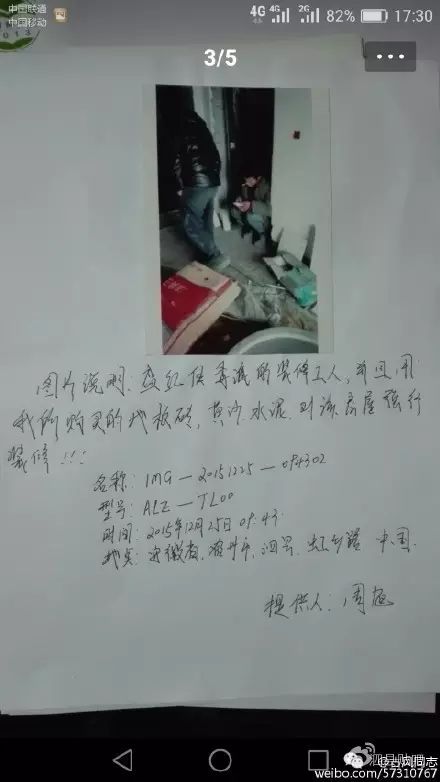 中国联通
中国移动
4G 4G 2G 82% 17:30
2013
3/5
图片说明:
的装修工人,并且用
我所购买的地板砖,黄沙水泥,对该房屋强行
装修!!!
名称: IMG-20151225-094302
型号: ATL00
时间: 2015年12月25日 09:43
地点: 安徽省,宿州市,泗县,虹乡路 中国
提供人: 周
泗县贴吧
@古风同志
weibo.com/57310767